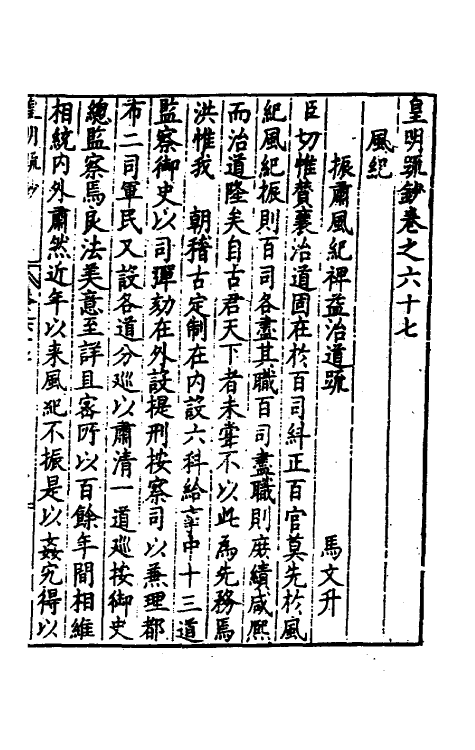 皇明疏鈔卷之六十七
風紀
振肅風紀裨益治道疏　馬文升
臣切惟賛襄治道固在於百司糾正百官莫先於風
紀風紀振則百司各盡其職百司盡職則庶績咸熙
而治道隆矣自古君天下者未嘗不以此為先務焉
洪惟我　朝稽古定制在内設六科給事中十三道
監察御史以司彈劾在外設提刑按察司以兼理都
布二司軍民又設各道分巡以肅清一道巡按御史
總監察焉良法美意至詳且密所以百餘年間相維
相統内外肅然近年以来風紀不振是以姦宄得以
皇明疏鈔